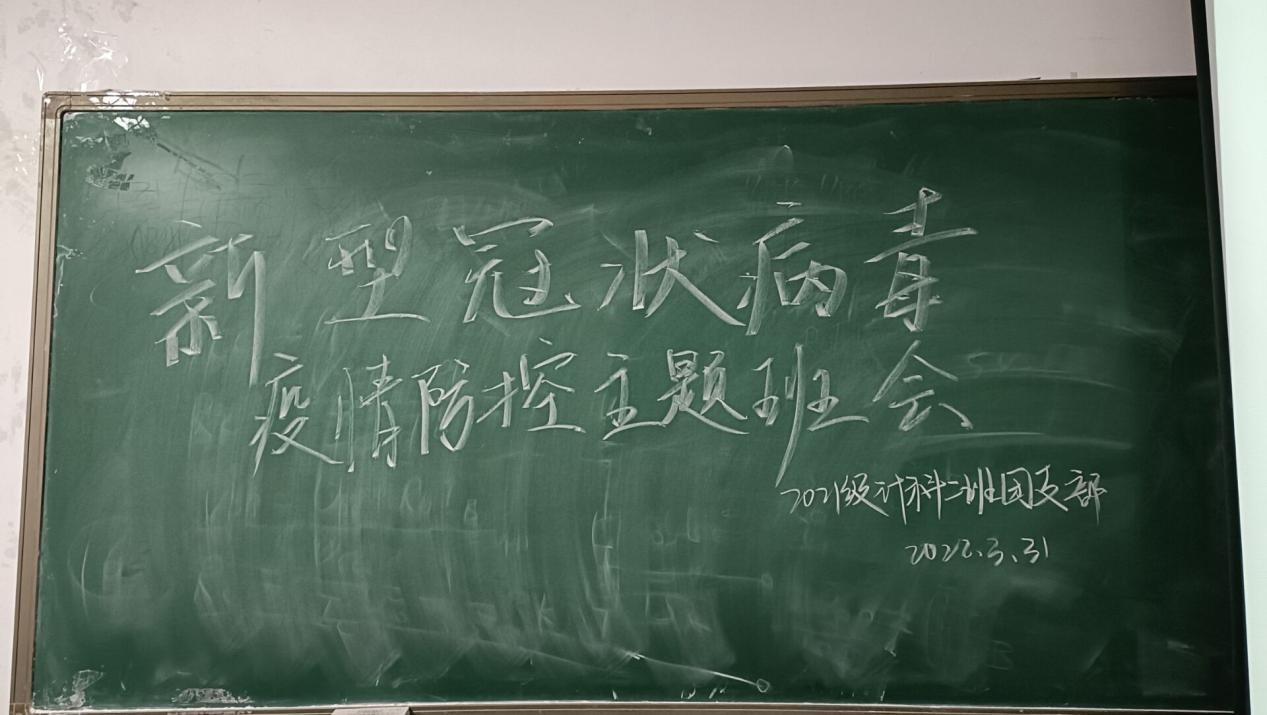 新型冠状病毒
疫情防控主题班会
2021级计科二班团支部
2022.3.31